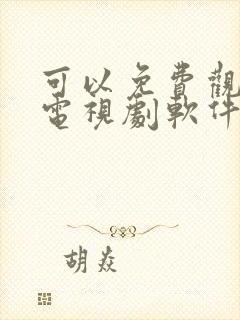 可以免費觀
電視劇軟件
胡焱